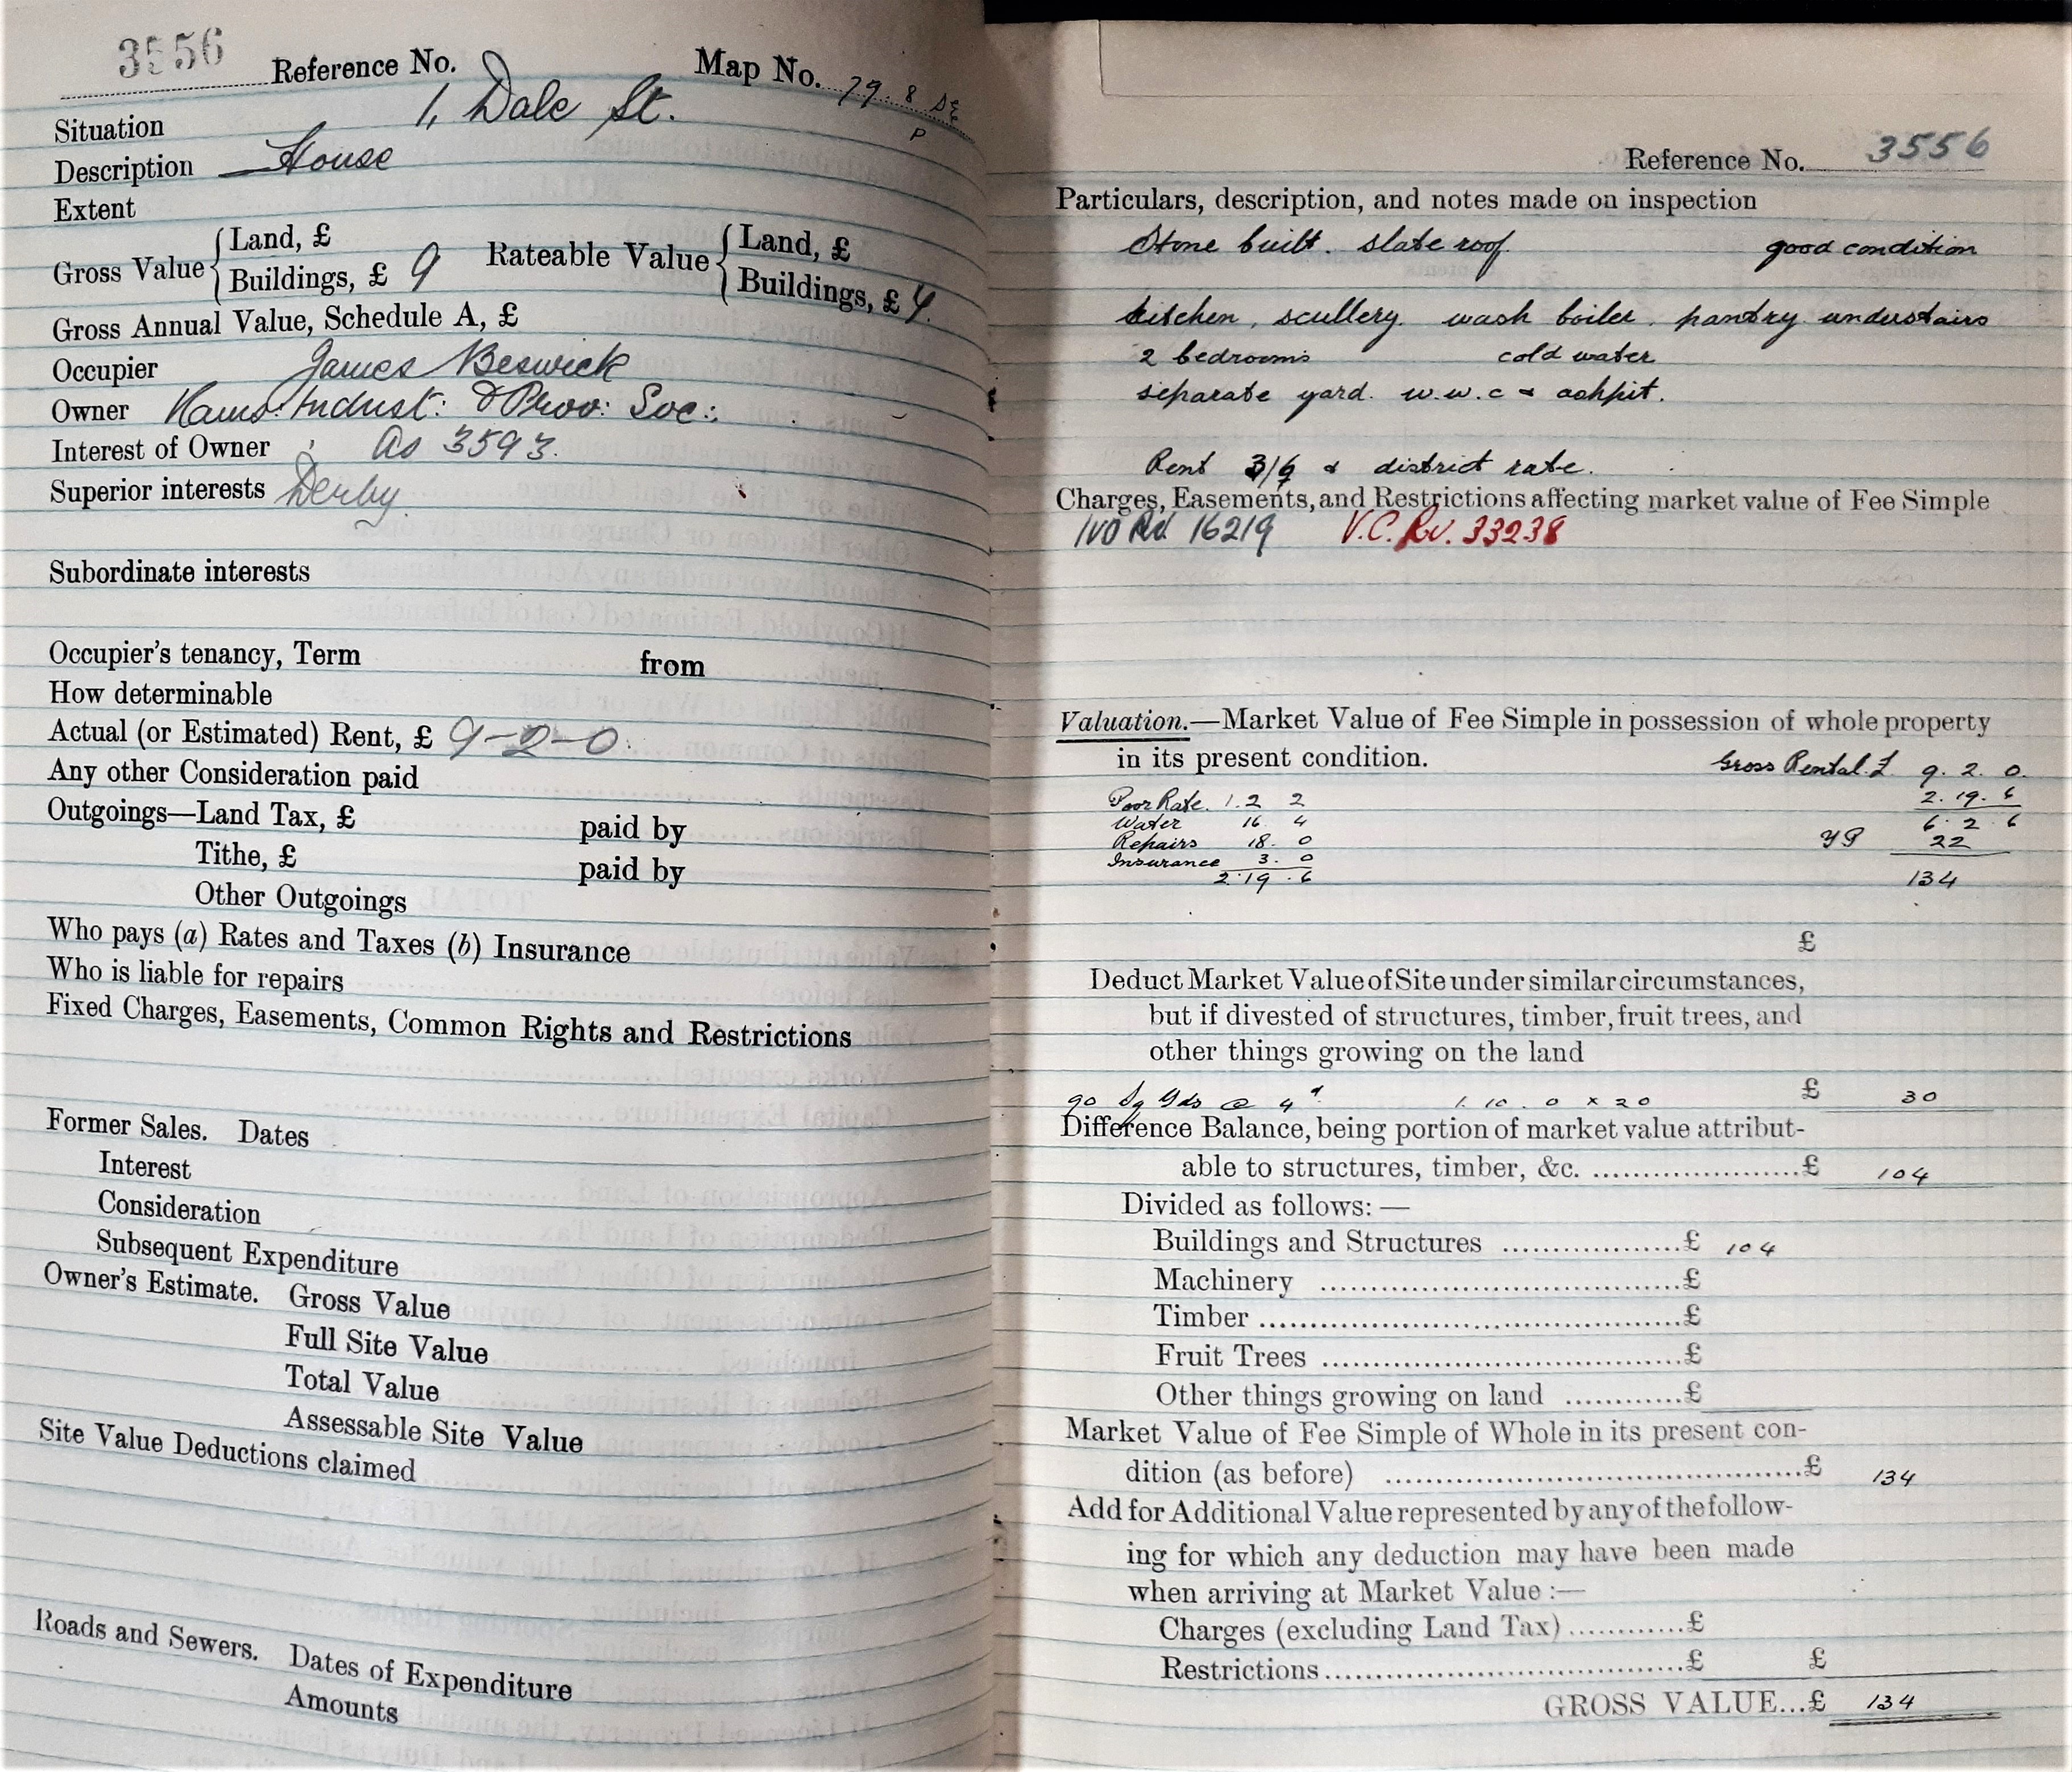 3556 Reference No. Map No. 79. 8 SE
P
Situation 1, Dale St.
Description House
Extent
Gross Value { Land, £ Rateable Value { Land, £
Buildings, £ 9 Buildings, £
Gross Annual Value, Schedule A, £
Occupier James Beswick
Owner Indust: & Prov: Soc:
Interest of Owner As 3593.
Superior interests Derby.
Subordinate interests
Occupier's tenancy, Term from
How determinable
Actual (or Estimated) Rent, £ 9-2-0.
Any other Consideration paid
Outgoings—Land Tax, £ paid by
Tithe, £ paid by
Other Outgoings
Who pays (a) Rates and Taxes (b) Insurance
Who is liable for repairs
Fixed Charges, Easements, Common Rights and Restrictions
Former Sales. Dates
Interest
Consideration
Subsequent Expenditure
Owner's Estimate. Gross Value
Full Site Value
Total Value
Assessable Site Value
Site Value Deductions claimed
Roads and Sewers. Dates of Expenditure
Amounts
Reference No. 3556
Particulars, description, and notes made on inspection
Stone built. slate roof. good condition
kitchen, scullery. wash boiler. pantry understairs
2 bedrooms cold water
separate yard. w.w.c & ashpit.
Rent 3/6 & district rate.
Charges, Easements, and Restrictions affecting market value of Fee Simple
16219 V.C. 33238
Valuation.—Market Value of Fee Simple in possession of whole property
in its present condition. Gross Rental. £ 9. 2. 0.
Poor Rate. 1. 2 2 2. 19. 6
Water 16 4 6. 2 6
Repairs 18. 0 YP 22
Insurance 3. 0
2. 19. 6 134
£
Deduct Market Value of Site under similar circumstances,
but if divested of structures, timber, fruit trees, and
other things growing on the land
90 Sq Yds @ 4d 1. 10. 0 x 20 £ 30
Difference Balance, being portion of market value attribut-
able to structures, timber, &c. ....................£ 104
Divided as follows:—
Buildings and Structures ..................£ 104
Machinery ....................................£
Timber ..........................................£
Fruit Trees ....................................£
Other things growing on land ............£
Market Value of Fee Simple of Whole in its present con-
dition (as before) .........................................£ 134
Add for Additional Value represented by any of the follow-
ing for which any deduction may have been made
when arriving at Market Value :—
Charges (excluding Land Tax)............£
Restrictions....................................£ £
GROSS VALUE...£ 134